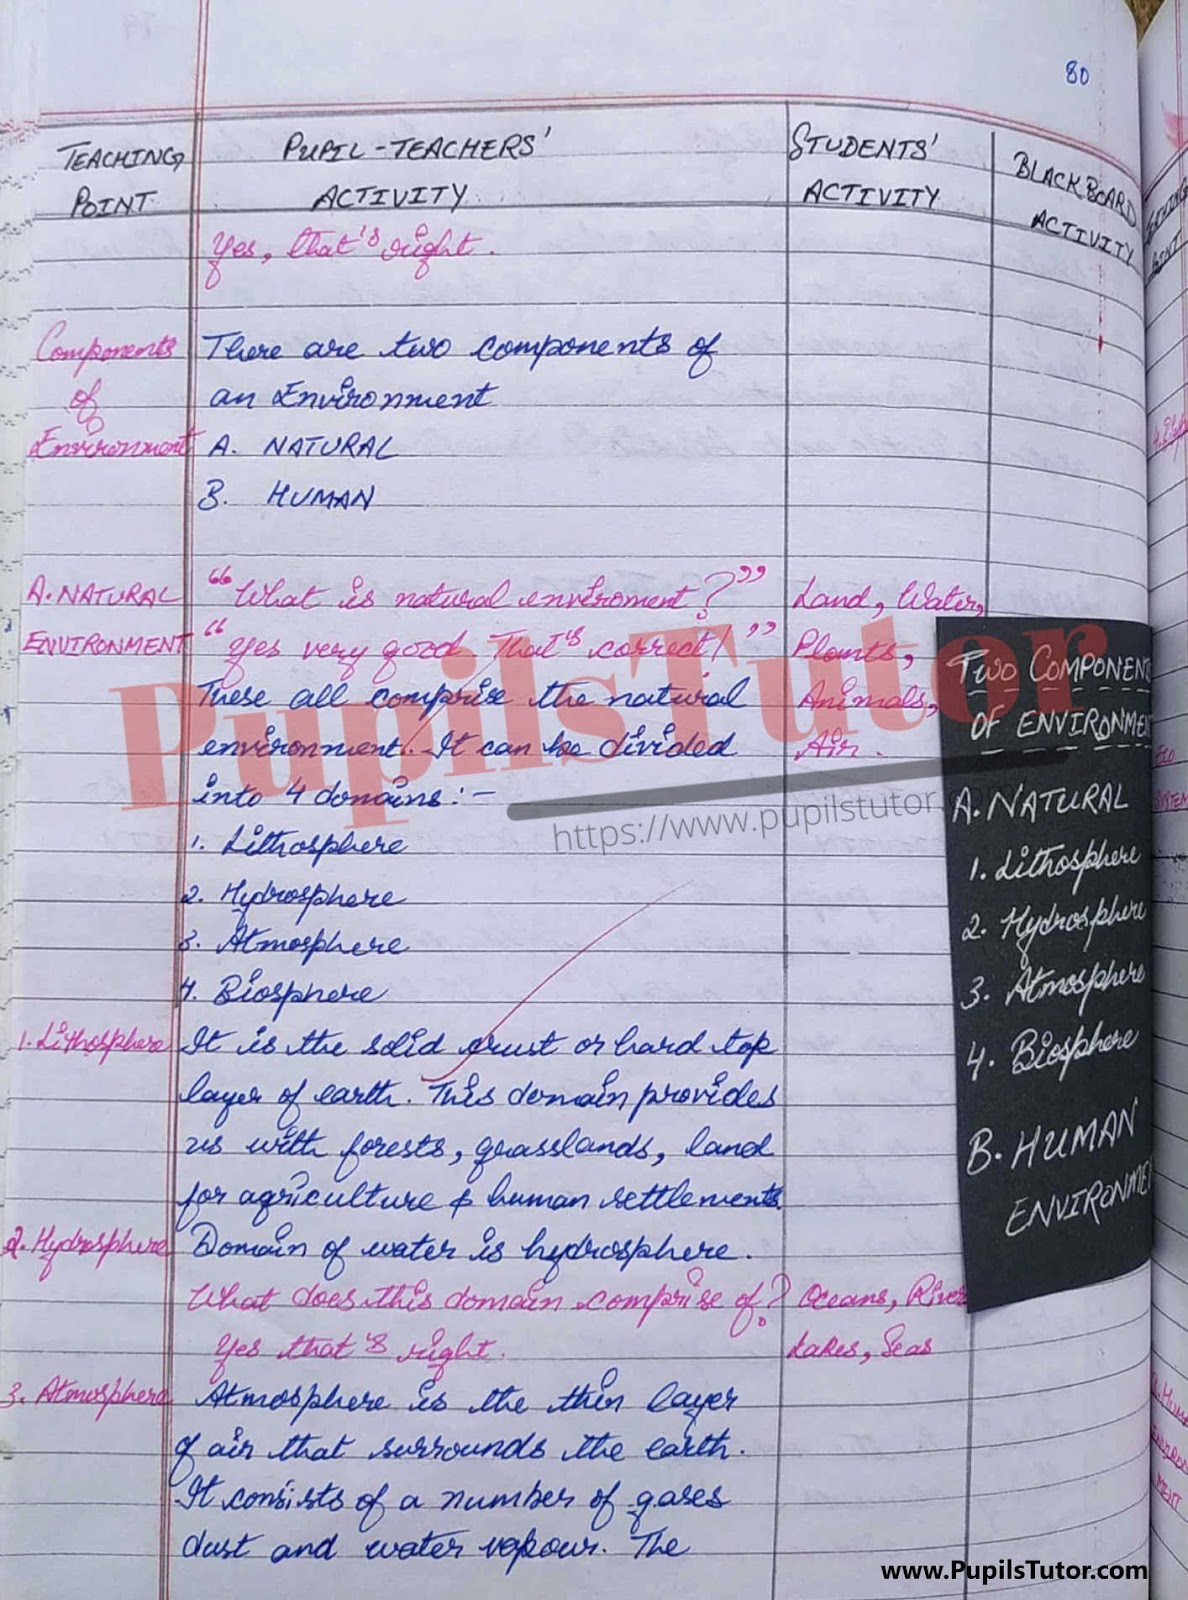 80
TEACHING POINT
PUPIL-TEACHERS' ACTIVITY
STUDENTS' ACTIVITY
BLACKBOARD ACTIVITY
Yes, that's right.
Components of Environment
There are two components of
an Environment
A. NATURAL
B. HUMAN
A. NATURAL ENVIRONMENT
"What is natural enviroment?"
Land, Water,
"Yes very good That's correct!"
Plants,
These all comprise the natural
Animals,
environment. It can be divided
Air.
into 4 domains:-
1. Lithosphere
2. Hydrosphere
3. Atmosphere
4. Biosphere
TWO COMPONENT
OF ENVIRONMENT
A. NATURAL
1. Lithosphere
2. Hydrosphere
3. Atmosphere
4. Biosphere
B. HUMAN
ENVIRONME
1. Lithosphere
It is the solid crust or hard top
layer of earth. This domain provides
us with forests, grasslands, land
for agriculture & human settlements.
2. Hydrosphere
Domain of water is hydrosphere.
What does this domain comprise of?
Oceans, River
Yes that's right.
Lakes, Seas
3. Atmosphere
Atmosphere is the thin layer
of air that surrounds the earth.
It consists of a number of gases
dust and water vapour. The
PupilsTutor
https://www.pupilstutor.
www.PupilsTutor.com